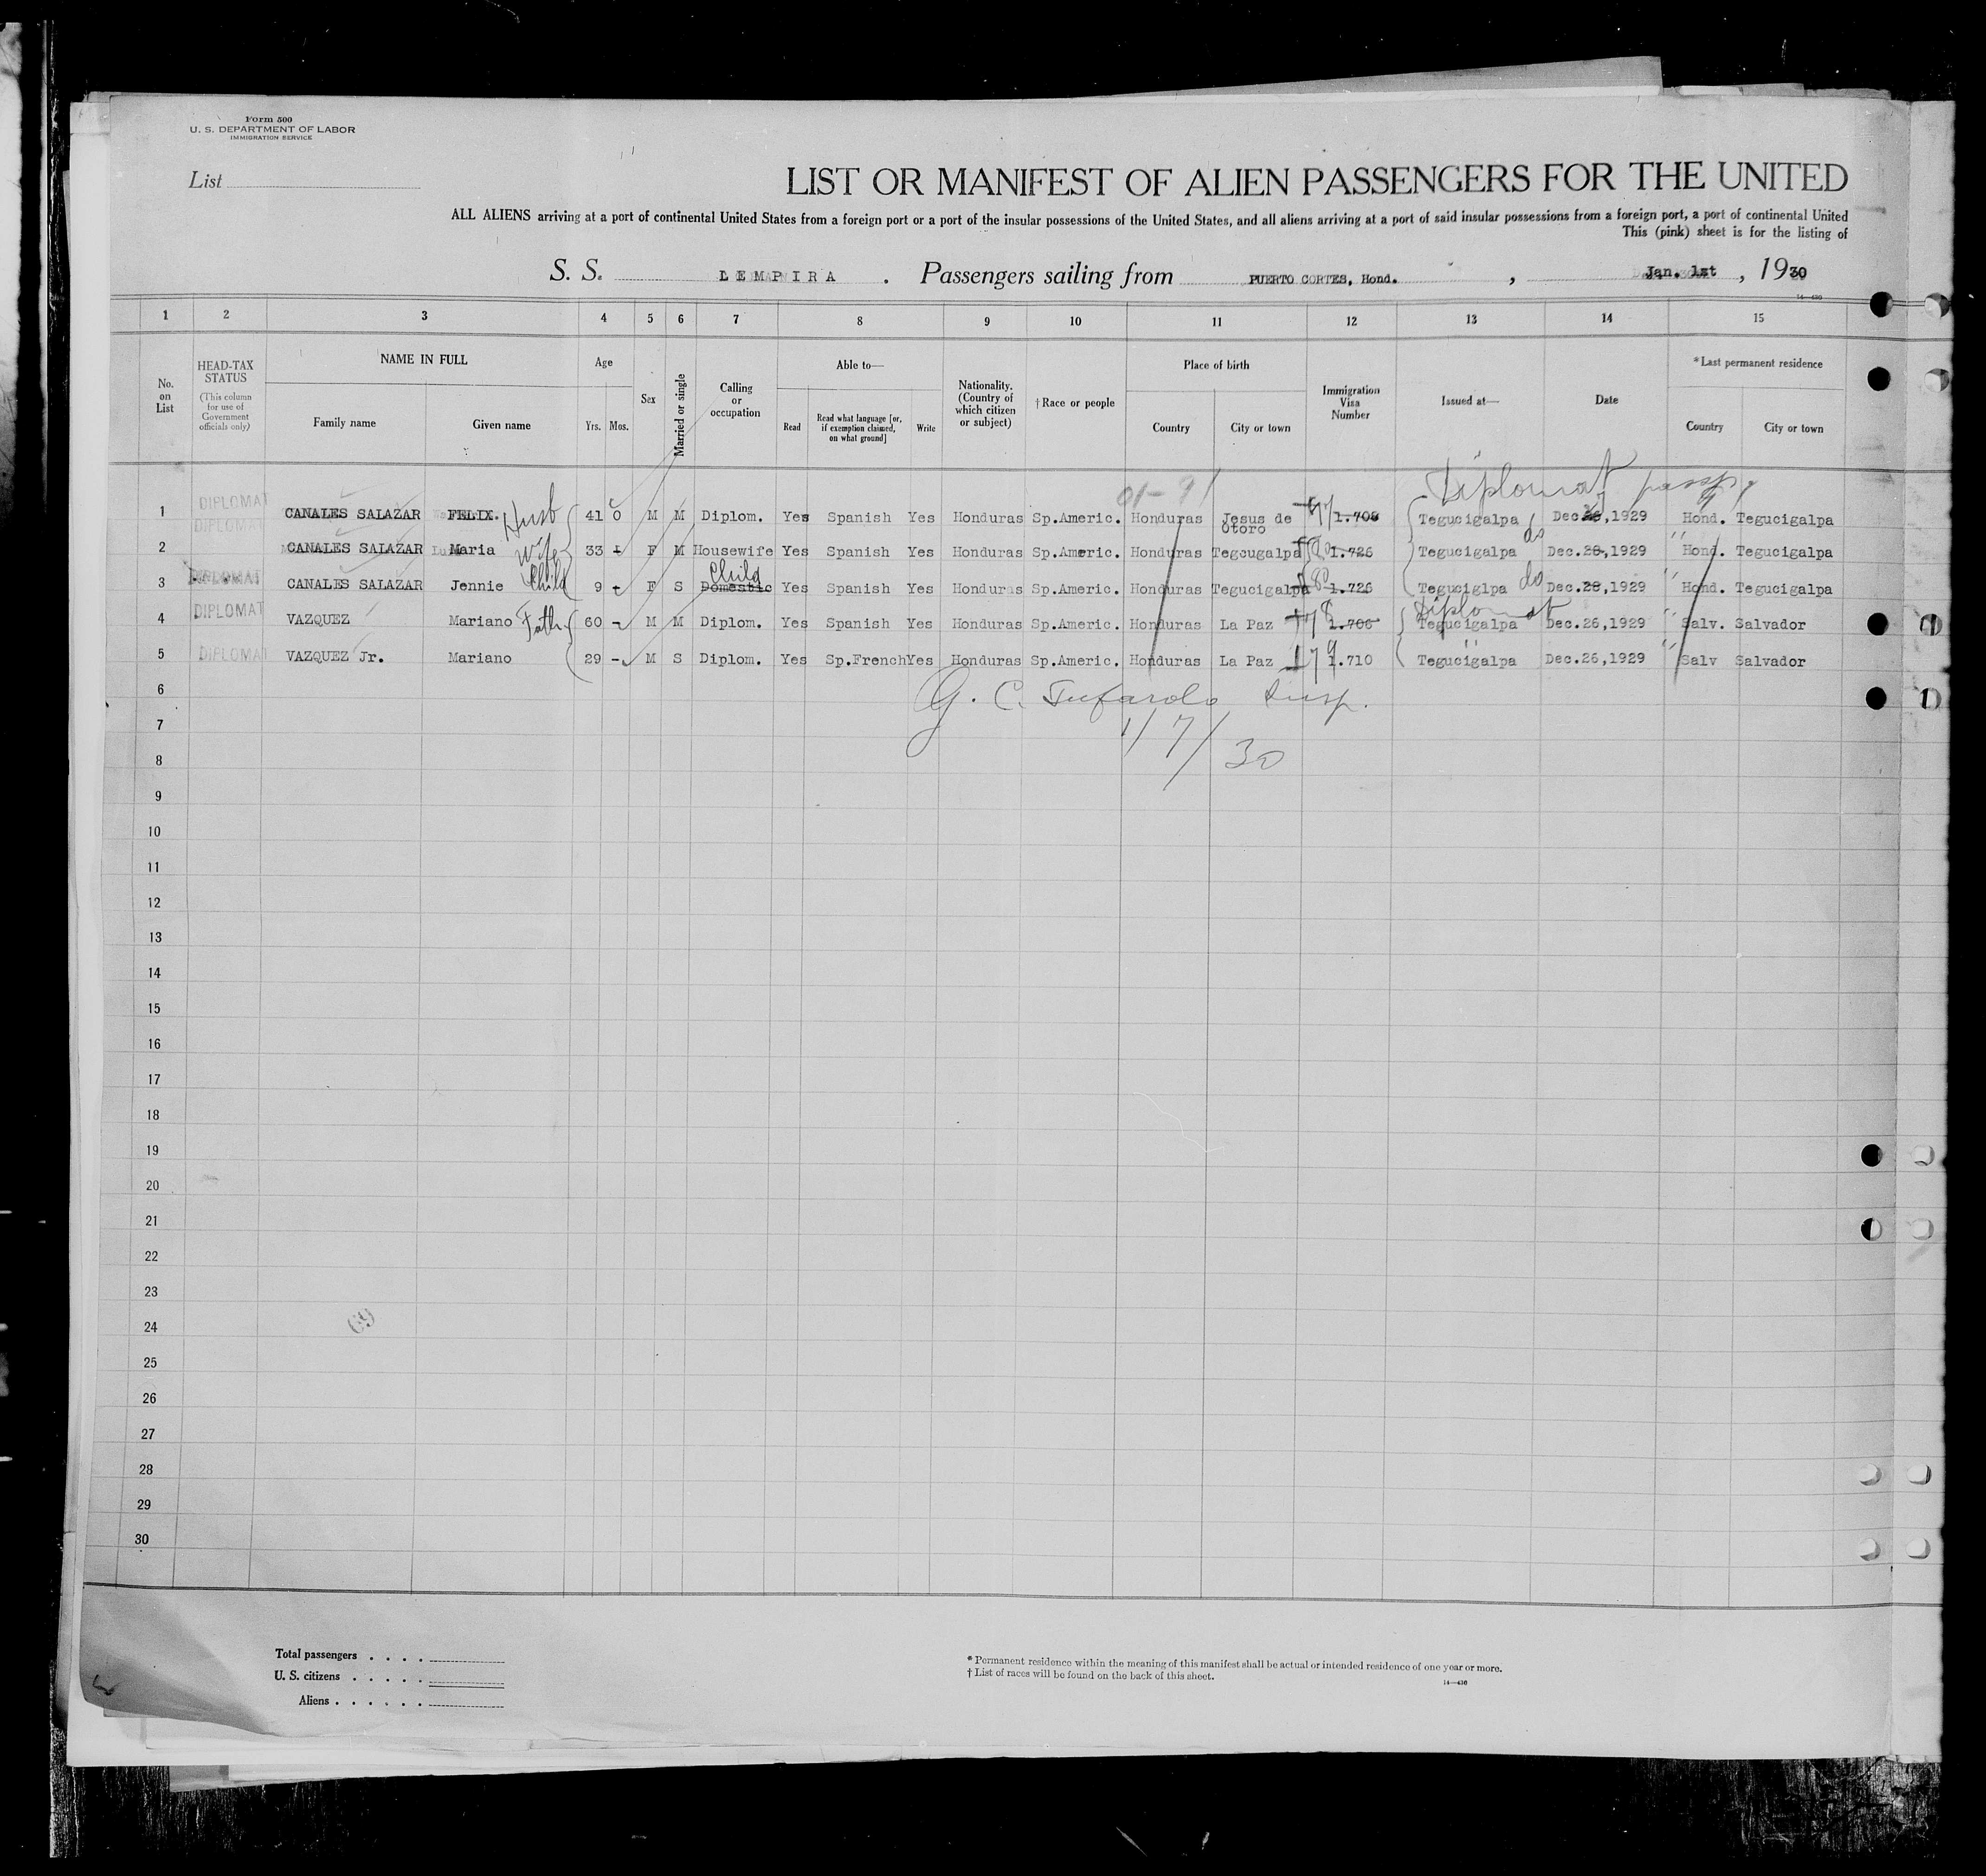 Form 500
U. S. DEPARTMENT OF LABOR
IMMIGRATION SERVICE
List
LIST OR MANIFEST OF ALIEN PASSENGERS FOR THE UNITED
ALL ALIENS arriving at a port of continental United States from a foreign port or a port of the insular possessions of the United States, and all aliens arriving at a port of said insular possessions from a foreign port, a port of continental United
This (pink) sheet is for the listing of
S. S. LEMPIRA . Passengers sailing from PUERTO CORTES, Hond. , Jan. 1st , 1930
14—430
1 2 3 4 5 6 7 8 9 10 11 12 13 14 15
No. on List
HEAD-TAX STATUS
(This column for use of Government officials only)
NAME IN FULL
Family name Given name
Age
Yrs. Mos.
Sex
Married or single
Calling or occupation
Able to—
Read Read what language [or, if exemption claimed, on what ground] Write
Nationality. (Country of which citizen or subject)
†Race or people
Place of birth
Country City or town
Immigration Visa Number
Issued at—
Date
*Last permanent residence
Country City or town
Diplomat
1 DIPLOMAT CANALES SALAZAR FELIX. Husb 41 0 M M Diplom. Yes Spanish Yes Honduras Sp.Americ. Honduras Jesus de Otoro 1.708 Tegucigalpa Dec. ,1929 Hond. Tegucigalpa
2 DIPLOMAT CANALES SALAZAR Maria Wife 33 F M Housewife Yes Spanish Yes Honduras Sp.Americ. Honduras Tegcugalpa 1.726 Tegucigalpa do Dec.28,1929 " Hond. Tegucigalpa
3 DIPLOMAT CANALES SALAZAR Jennie Child 9 - F S Domestic Child Yes Spanish Yes Honduras Sp.Americ. Honduras Tegucigalpa 1.726 Teguciglpa do Dec.28,1929 " Hond. Tegucigalpa
4 DIPLOMAT VAZQUEZ Mariano Fath. 60 - M M Diplom. Yes Spanish Yes Honduras Sp.Americ. Honduras La Paz 1.706 Tegucigalpa Diplomat Dec.26,1929 " Salv. Salvador
5 DIPLOMAT VAZQUEZ Jr. Mariano 29 - M S Diplom. Yes Sp.French Yes Honduras Sp.Americ. Honduras La Paz 1.710 Tegucigalpa Dec.26,1929 " Salv Salvador
6
G. C. Insp.
7
1/7/30
8
9
10
11
12
13
14
15
16
17
18
19
20
21
22
23
24
69
25
26
27
28
29
30
Total passengers . . . .
U. S. citizens . . . . .
Aliens . . . . . .
* Permanent residence within the meaning of this manifest shall be actual or intended residence of one year or more.
† List of races will be found on the back of this sheet.
14—430